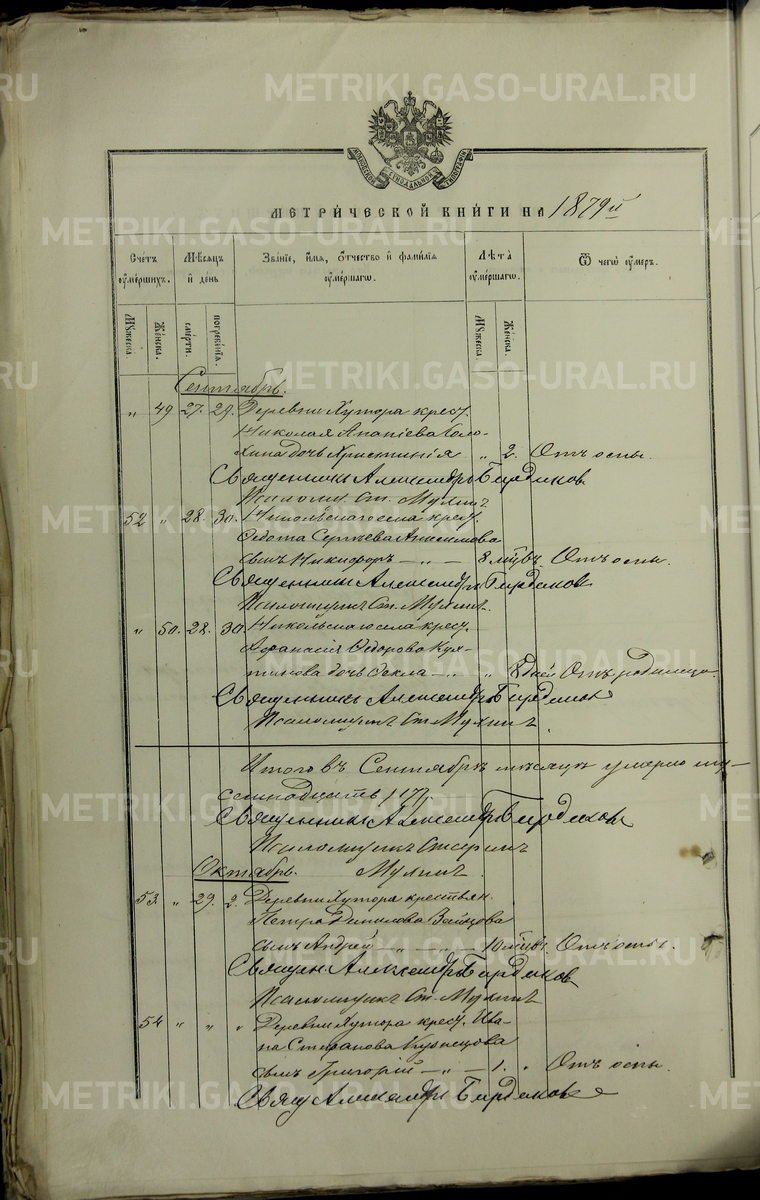 METRIKI.GASO-URAL.RU
МОСКОВСКОЙ СѴНОДАЛЬНОЙ ТИПОГРАФІИ
МЕТРИ́ЧЕСКОЙ КНИ́ГИ НА 1879й
Сче́тъ оу҆ме́ршихъ.
Мѣ́сяцъ и҆ де́нь.
Зва́нїе, и҆́мя, ѻ҆́тчество и҆ фами́лїя оу҆ме́ршагѡ.
Лѣ̑та оу҆ме́ршагѡ.
Ѿ чегѡ̀ оу҆́меръ.
Мꙋ́жеска.
Же́нска.
сме́рти.
погребе́нїя.
Мꙋ́жеска.
Же́нска.
Сентябрь.
" 49 27. 29. Деревни Хутора крест.
Николая Ананіева
дочь Христинія " 2. Отъ оспы.
Священникъ Александръ Бирюковъ
Псаломщ. Ст. Мухинъ
52 " 28. 30. Никольскаго села крест.
Федота Сергѣева Анисимова
сынъ Никифоръ — " — 8 мцвъ. Отъ оспы.
Священникъ Александръ Бирюковъ
Псаломщикъ Ст. Мухинъ.
" 50. 28. 30. Никольскаго села крест.
Афанасія Ѳедорова
дочь Ѳекла — " 8 дней Отъ родимца.
Священникъ Александръ Бирюковъ
Псаломщикъ Ст. Мухинъ.
Итого въ Сентябрѣ мѣсяцѣ умерло
семнадцать /17/.
Священникъ Александръ Бирюковъ
Псаломщикъ
Мухинъ.
Октябрь.
53. " 29. 2. Деревни Хутора крестьян.
Петра Данилова Зайцова
сынъ Андрей " — " — 10 мцвъ. Отъ оспы.
Священ. Александръ Бирюковъ
Псаломщикъ Ст. Мухинъ
54 " " " Деревни Хутора крест. Ива-
на Стефанова Кузнецова
сынъ Григорій — " — 1. " Отъ оспы.
Свящ Александръ Бирюковъ